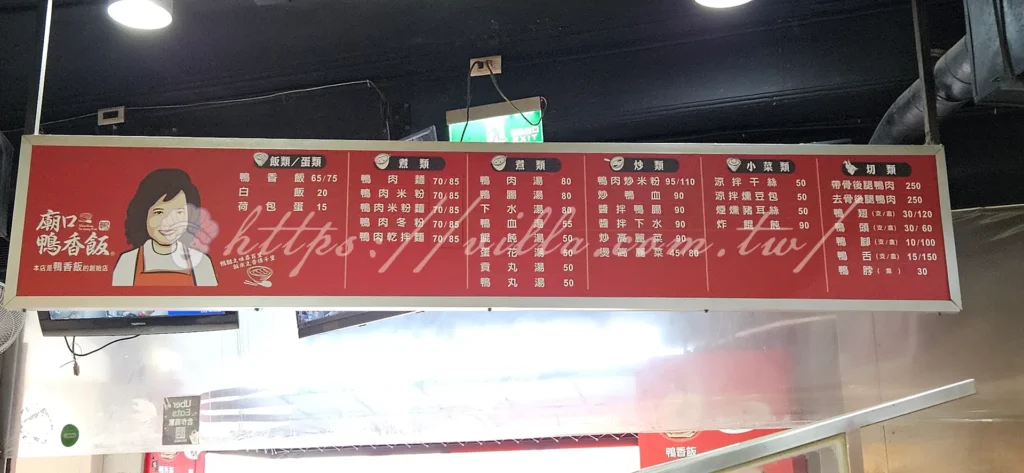 廟口
鴨香飯
本店是鴨香飯的創始店
飯類/蛋類
鴨香飯 65/75
白飯 20
荷包蛋 15
煮類
鴨肉麵 70/85
鴨肉米粉 70/85
鴨肉米麵 70/85
鴨肉冬粉 70/85
鴨肉乾拌麵 70/85
煮類
鴨肉湯 80
鴨腸湯 80
下水湯 80
鴨血湯 55
餛飩湯 50
蛋花湯 50
貢丸湯 50
鴨丸湯 50
炒類
鴨肉炒米粉 95/110
炒鴨血 90
醬拌鴨腸 90
醬拌下水 90
炒高麗菜 90
燙高麗菜 45/80
小菜類
涼拌干絲 50
涼拌燻豆包 50
煙燻豬耳絲 50
炸餛飩 90
切類
帶骨後腿鴨肉 250
去骨後腿鴨肉 250
鴨翅(支/盤) 30/120
鴨頭(支/盤) 30/60
鴨腳(支/盤) 10/100
鴨舌(支/盤) 15/150
鴨脖(盤) 30
https://villa.com.tw/
EXIT
Uber
Eats
鴨香飯